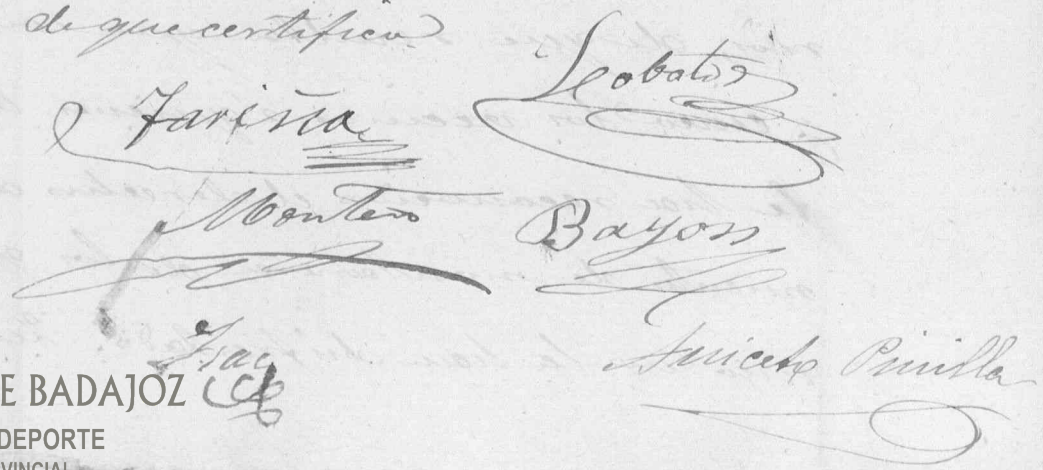 de que certifico
Fariña
Lobato
Montero
Bayon
Aniceto Pinilla
E BADAJOZ
DEPORTE
VINCIAL